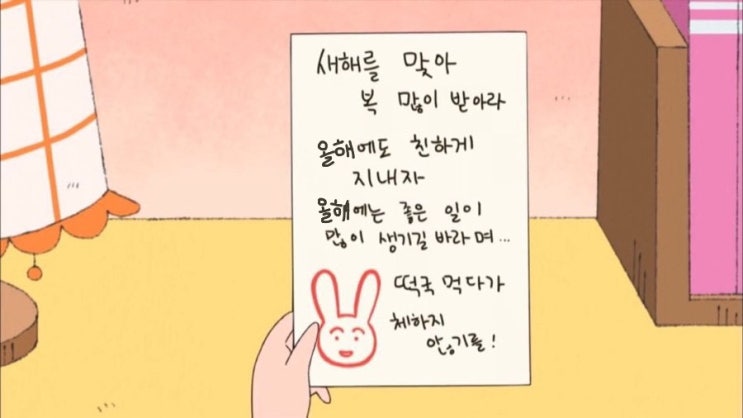 새해를 맞아
복 많이 받아라
올해에도 친하게
지내자
올해에는 좋은 일이
많이 생기길 바라며...
떡국 먹다가
체하지
않기를!